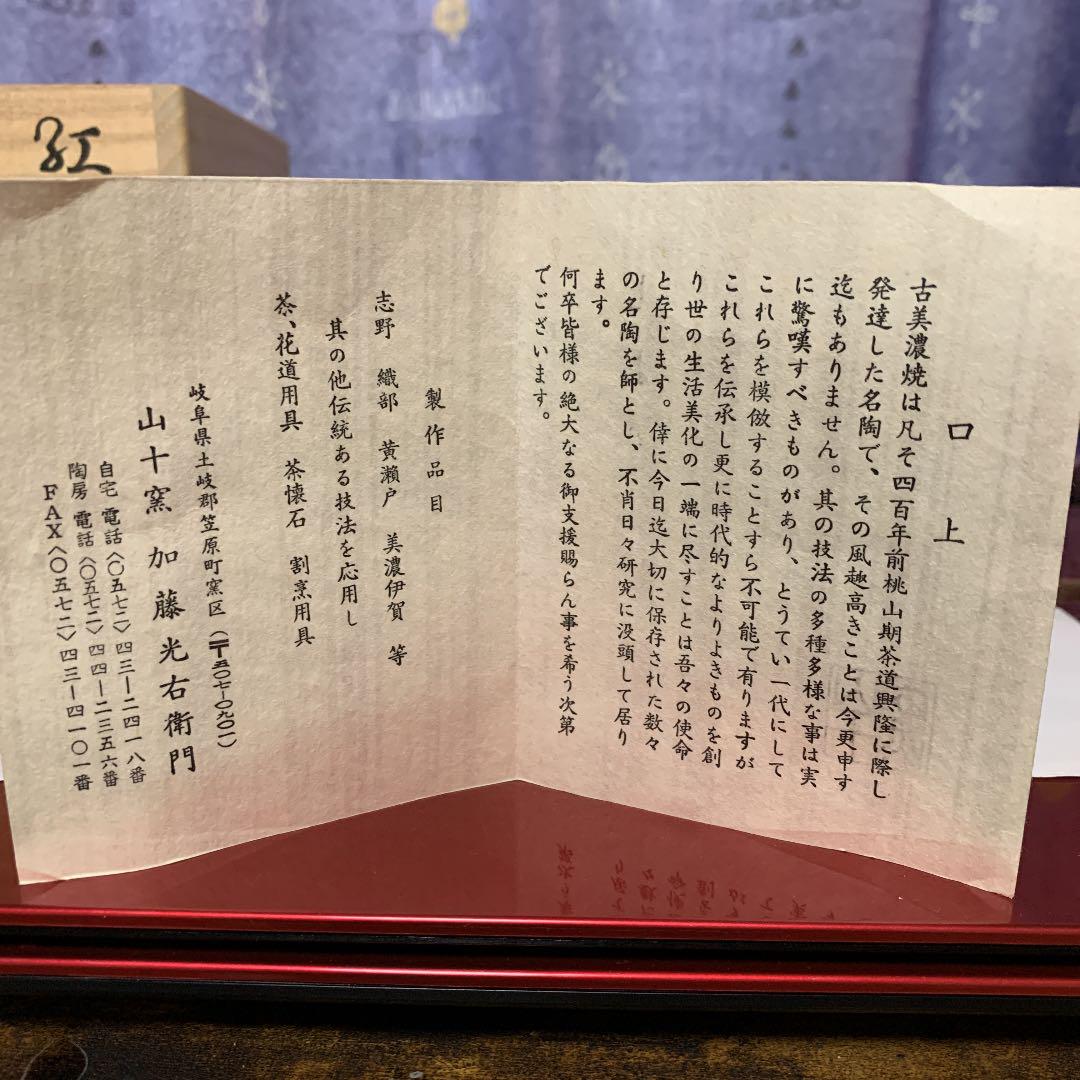 口上
古美濃焼は凡そ四百年前桃山期茶道興隆に際し
発達した名陶で、その風趣高きことは今更申す
迄もありません。其の技法の多種多様な事は実
に驚嘆すべきものがあり、とうてい一代にして
これらを模倣することすら不可能で有りますが
これらを伝承し更に時代的なよりよきものを創
り世の生活美化の一端に尽すことは吾々の使命
と存じます。倖に今日迄大切に保存された数々
の名陶を師とし、不肖日々研究に没頭して居り
ます。
何卒皆様の絶大なる御支援賜らん事を希う次第
でございます。
製作品目
志野 織部 黄瀬戸 美濃伊賀 等
其の他伝統ある技法を応用し
茶、花道用具 茶懐石 割烹用具
岐阜県土岐郡笠原町窯区(〒五〇七-〇九〇一)
山十窯 加藤光右衛門
自宅 電話〈〇五七二〉四三-二四一八番
陶房 電話〈〇五七二〉四四-二三五六番
FAX〈〇五七二〉四三-四一〇一番
紅